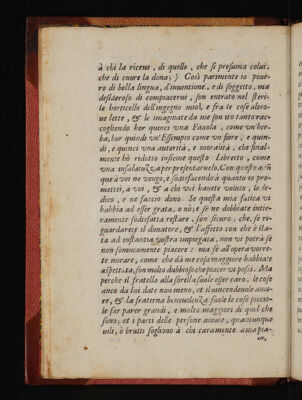 à chi la riceue, di quello, che si presuma colui,
che di cuore la dona;) Così parimente io poue-
ro di bella lingua, d'inuentione, e di soggetto, ma
desideroso di compiacerui, son entrato nel steri-
le horticello dell'ingegno mioi, e fra le cose altro-
ue lette, & le imaginate da me son ito tanto rac-
cogliendo hor quinci vna Fauola, come vn'her-
ba, hor quindi vn'Essempio come vn fiore, e quin-
di, e quinci vna autorità, e moralità, che final-
mente hò ridotto insieme questo Libretto, come
vna insalatuzza per presentaruelo. Con questo adū
que à voi ne vengo, e sodisfacendo à quanto io pro-
metei, a voi, & a chi voi hauete voluto, lo de-
dico, e ne faccio dono. Se questa mia fatica vi
habbia ad esser grata, o nò; e se ne dobbiate intie-
ramente sodisfatta restare, son sicuro, che, se ri-
guardarete il donatore, & l'affetto con che è sta-
ta ad instantia vostra impiegata, non vi potrà se
non sommamente piacere: ma se all'opera vorre-
te mirare, come che da me cosa maggiore habbiate
aspettata, son molto dubbioso che piacer vi possi. Ma
perche il fratello alla sorella suole esser caro, le cose
anco da lui date non meno, & il vincendeuole amo-
re, & la fraterna beneuolenza suole le cose piccio-
le far parer grandi, e molto maggiori di quel che
sono; et i parti delle persone amate, quantunque
vili, ò brutti sogliono à chi caramente ama pia-